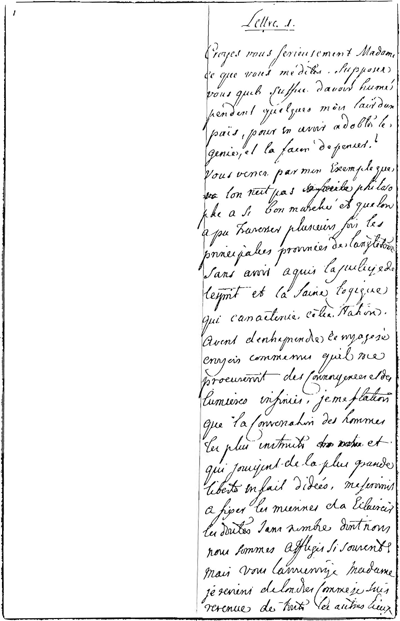 1
Lettre 1.
Croyes vous serieusement Madame
ce que vous médites. Supposez
vous quil suffise d'avoir humé
pendent quelques mois l'air d'un
païs, pour en avoir adobté le
genie, et la facon de penser.
Vous verres par mon Exemple que
lon nest pas philoso
phe a si bon marché et que lon
a pu traverser plusieurs fois les
principalles provinces de langleterre
sans avoir aquis la justesse de
lesprit et la Saine logique
qui caracterise cette Nation.
Avent d'entreprendre ce voyage je
croyois comme vous quil me
procureroit des Connoissences et des
lumieres infinies, je me flatois
que la Conversation des hommes
les plus instruits et
qui jouissent de la plus grande
liberté en fait didées, me serviroit
a fixer les miennes et a Eclaircir
les doutes Sans nombre dont nous
nous sommes affligés si souvent,
mais vous Madame
je reviens de londres Comme je suis
revenue de touts les autres lieux